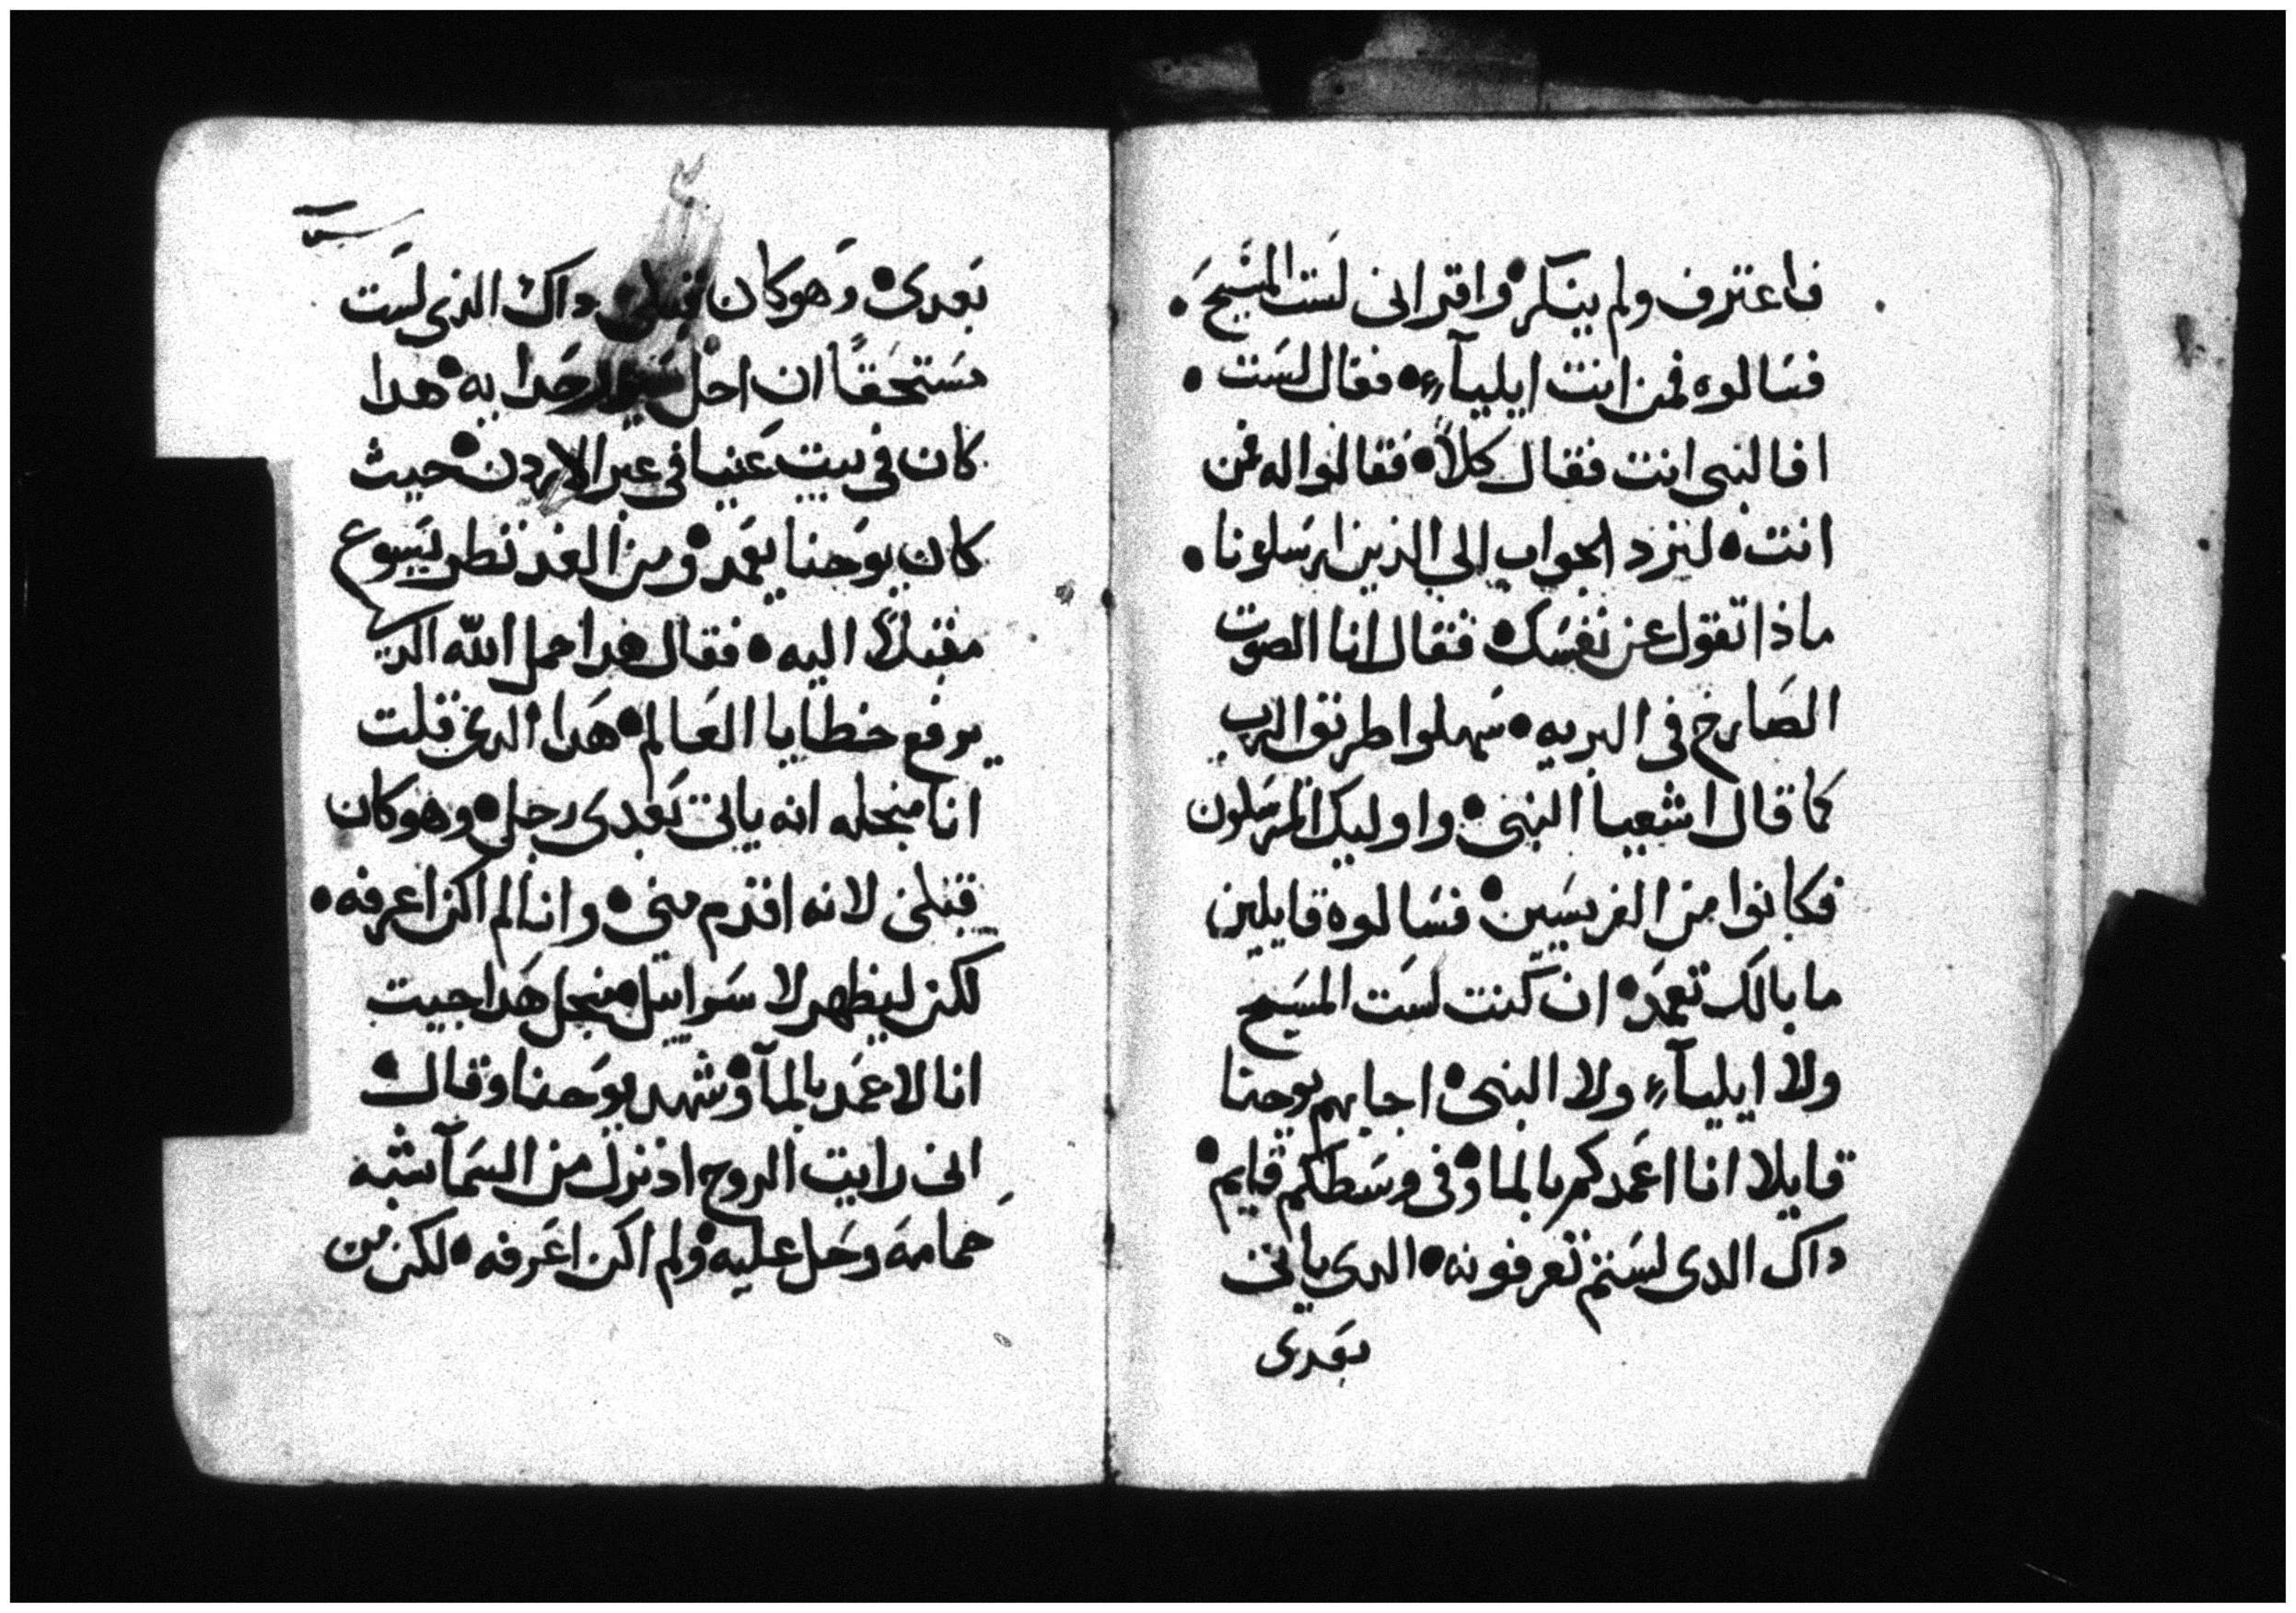 فاعترف ولم ينكر • واقر اني لست المسيح •
فسالوه فمن انت ايلياء • فقال لست •
افالنبي انت فقال كلاً • فقالوا له فمن
انت • لنرد الجواب الي الذين ارسلونا •
ماذا تقول عن نفسك • فقال انا الصوت
الصارخ في البريه • سهلوا طريق الرب
كما قال اشعيا النبي • واوليك المرسلون
فكانوا من الفريسين • فسالوه قايلين
ما بالك تعمد • ان كنت لست المسيح
ولا ايلياء ولا النبي • اجابهم يوحنا
قايلا انا اعمدكم بالما • وفي وسطكم قايم •
داك الدي لستم تعرفونه • الدي ياتي
بعدي
بعدي • وهو كان قبلي • داك الذي لست
مستحقاً ان احل سير حدا به • هدا
كان في بيت عنيا في عبر الاردن • حيث
كان يوحنا يعمد • ومن الغد نظر يسوع
مقبلاً اليه • فقال هدا حمل الله الدي
يرفع خطايا العالم • هدا الدي قلت
انا منجله انه ياتي بعدي رجل • وهو كان
قبلي لانه اقدم مني • وانا لم اكن اعرفه •
لكن ليظهر لاسراييل منجل هدا جيت
انا لاعمد بالمآ • وشهد يوحنا وقال •
اني رايت الروح اذ نزل من السمآ شبه
حمامه وحل عليه • ولم اكن اعرفه • لكن من